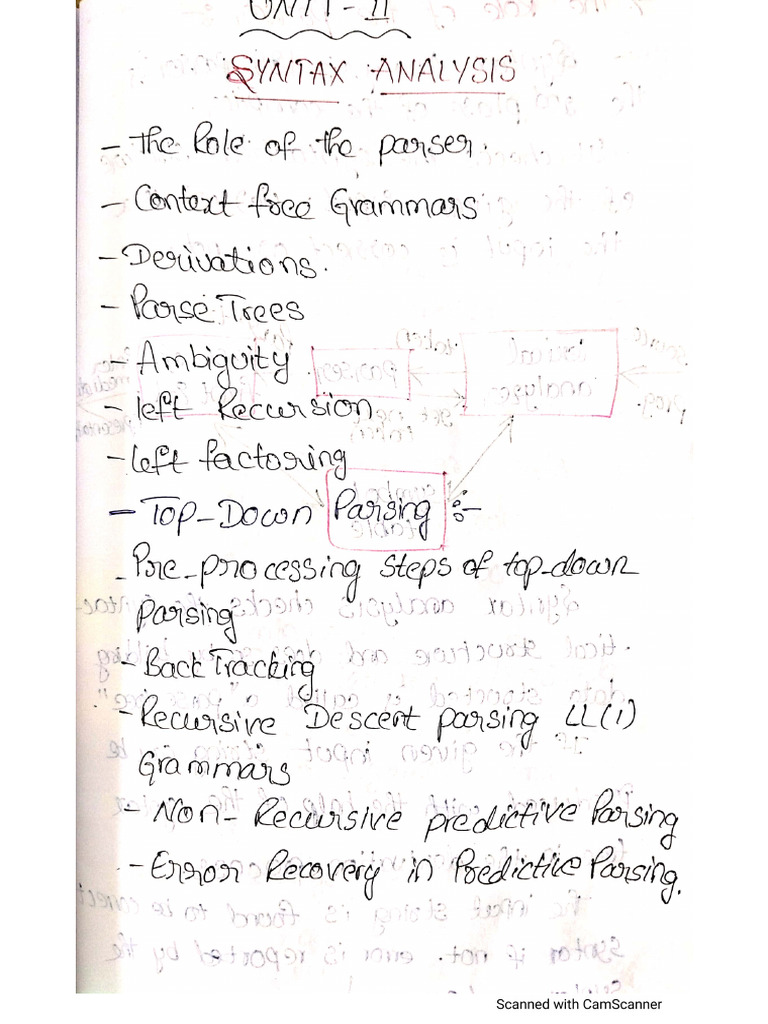 UNIT - II
SYNTAX ANALYSIS
- The Role of the parser.
- Context free Grammars
- Derivations.
- Parse Trees
- Ambiguity
- left Recursion
- left factoring
- Top-Down Parsing :-
- Pre-processing steps of top-down
parsing
- Back Tracking
- Recursive Descent parsing LL(1)
Grammars
- Non-Recursive predictive Parsing
- Error Recovery in Predictive Parsing.
Scanned with CamScanner